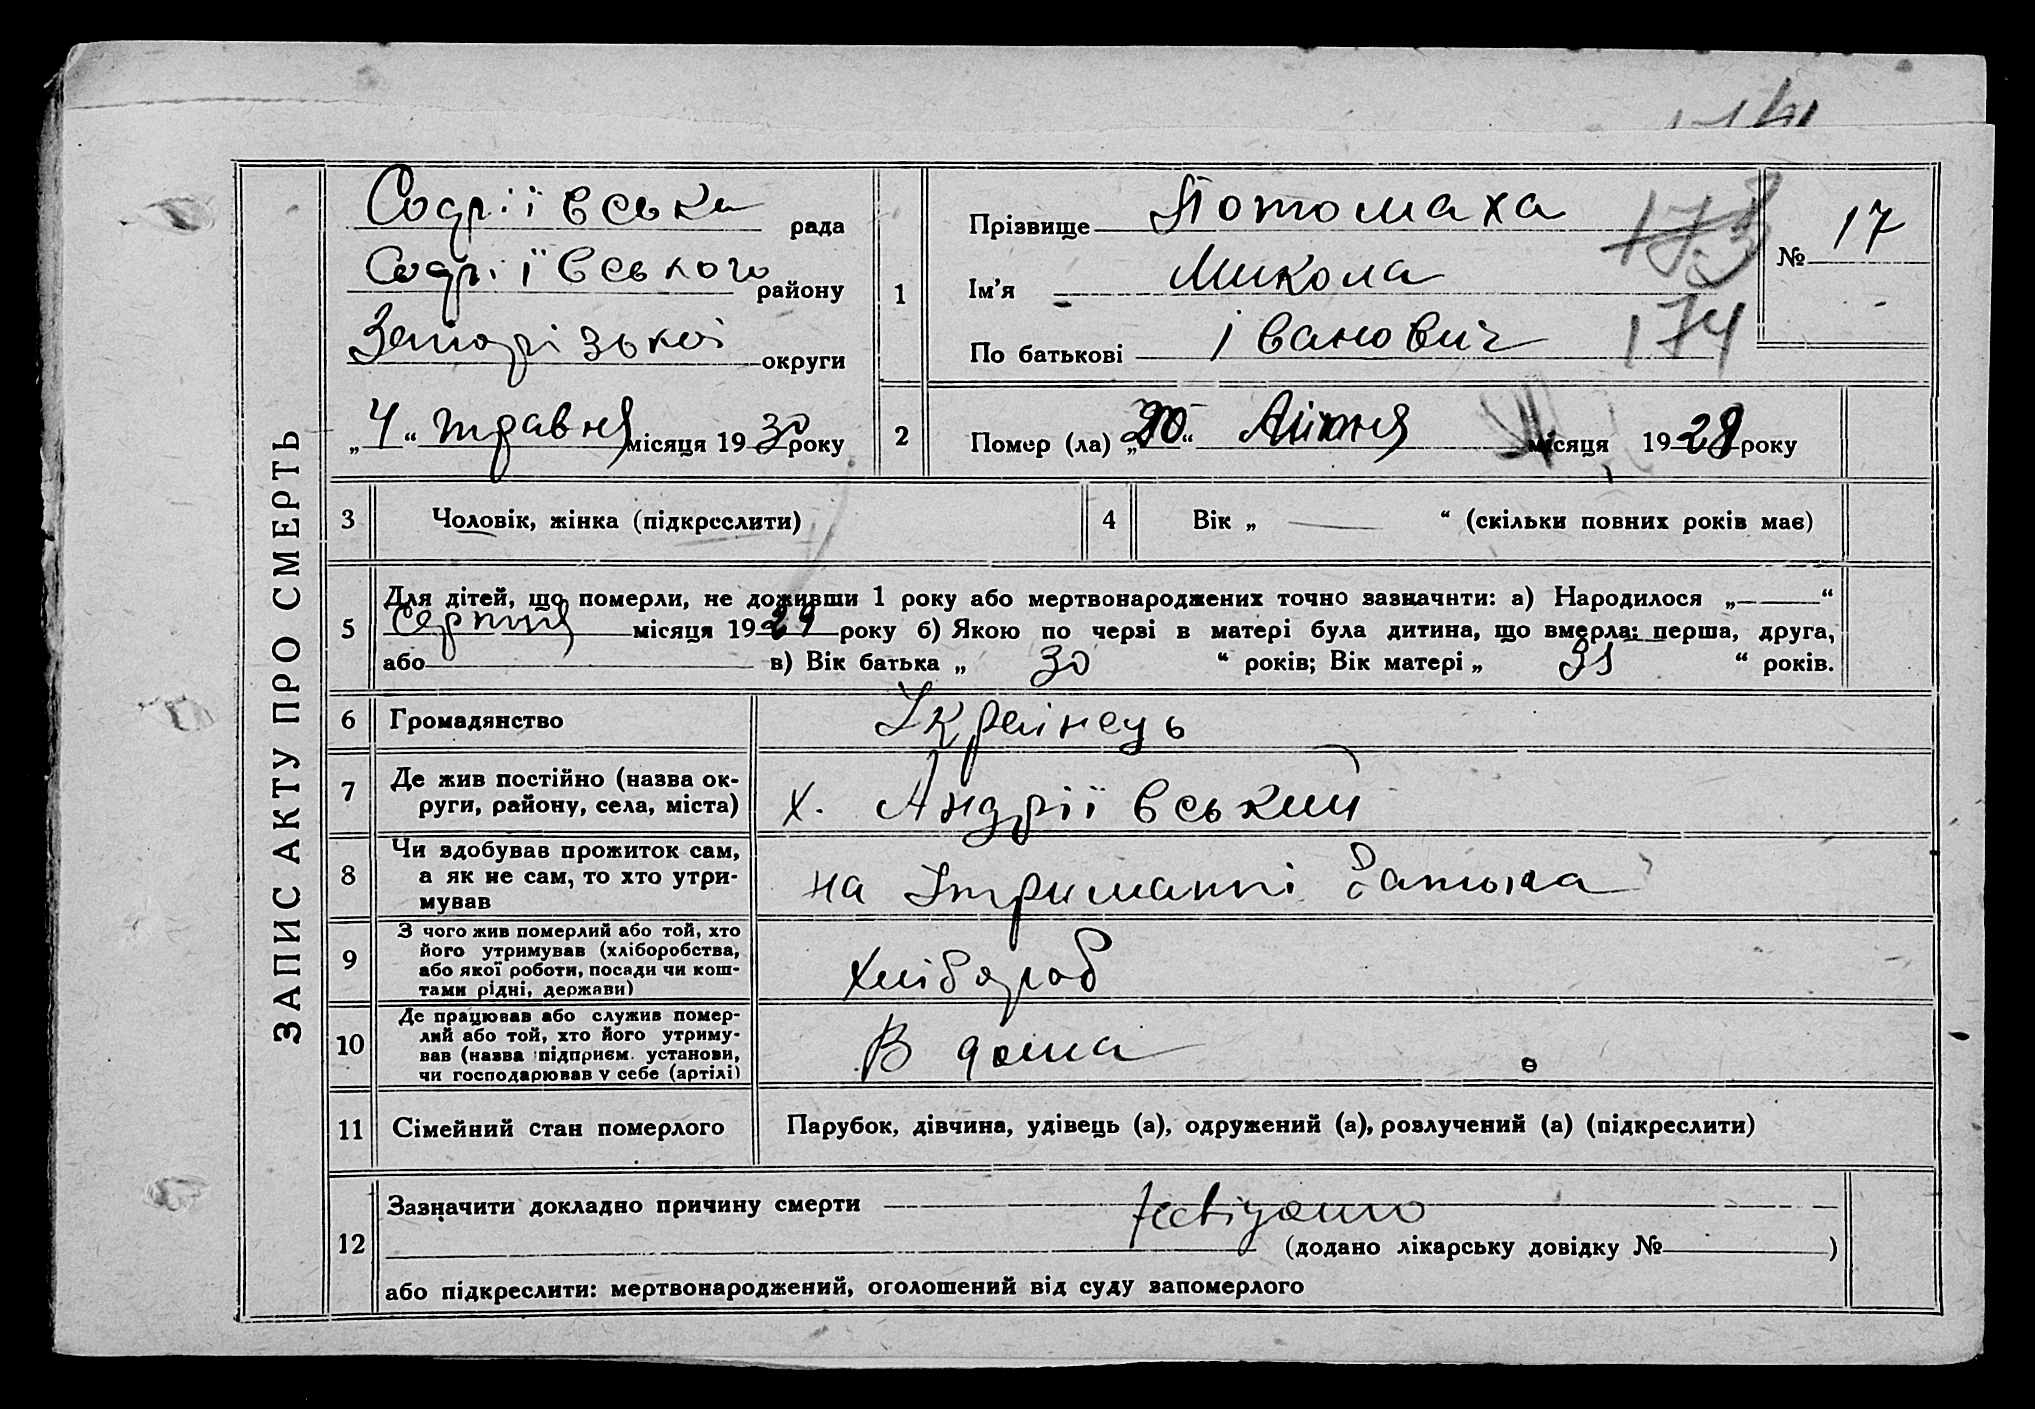 ЗАПИС АКТУ ПРО СМЕРТЬ
Софіївська рада
Софіївського району
Запорізької округи
„4“ травня місяця 1930 року
1
Прізвище Потомаха
Ім'я Микола
По батькові Іванович
№ 17
173
174
2
Помер (ла) „20“ місяця 1928 року
3
Чоловік, жінка (підкреслити)
4
Вік „—“ (скільки повних років має)
5
Для дітей, що померли, не доживши 1 року або мертвонароджених точно зазначити: а) Народилося „—“
Серпня місяця 1929 року б) Якою по черзі в матері була дитина, що вмерла: перша, друга,
або — в) Вік батька „30“ років; Вік матері „31“ років.
6
Громадянство
Українець
7
Де жив постійно (назва ок-
руги, району, села, міста)
х. Андріївський
8
Чи здобував прожиток сам,
а як не сам, то хто утри-
мував
на Утриманні батька
9
З чого жив померлий або той, хто
його утримував (хліборобства,
або якої роботи, посади чи кош-
тами рідні, держави)
хлібороб
10
Де працював або служив помер-
лий або той, хто його утриму-
вав (назва підприєм. установи,
чи господарював у себе (артілі)
В дома
11
Сімейний стан померлого
Парубок, дівчина, удівець (а), одружений (а), розлучений (а) (підкреслити)
12
Зазначити докладно причину смерти невідомо
(додано лікарську довідку № )
або підкреслити: мертвонароджений, оголошений від суду запомерлого